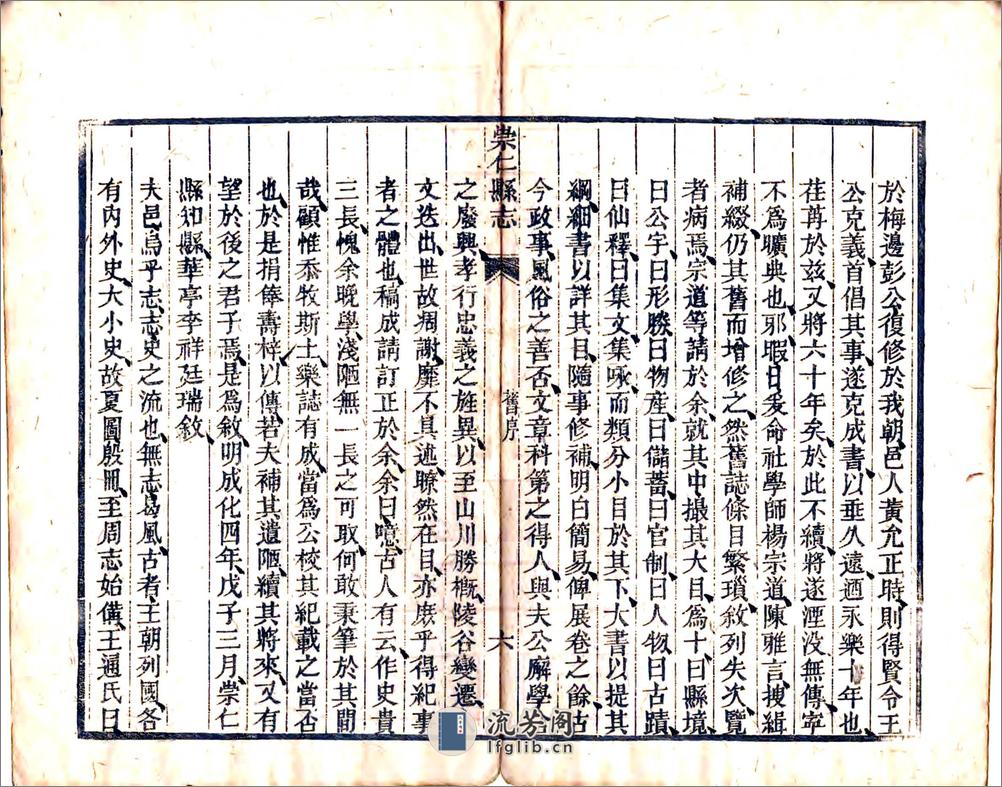 於梅邊彭公復修於我朝邑人黃允正時則得賢令王
公克義首倡其事遂克成書以垂久遠迺永樂十年也
荏苒於茲又將六十年矣於此不續將遂湮没無傳寧
不爲曠典也邪暇日爰命社學師楊宗道陳雅言搜緝
補綴仍其舊而增修之然舊誌條目繁瑣敘列失次覽
者病焉宗道等請於余就其中撮其大目爲十曰縣境
曰公宇曰形勝曰物産曰儲蓄曰官制曰人物曰古蹟
曰仙釋曰集文集咏而類分小目於其下大書以提其
綱細書以詳其目隨事修補明白簡易俾展卷之餘古
今政事風俗之善否文章科第之得人與夫公廨學舍
崇仁縣志
舊序
六
之廢興孝行忠義之旌異以至山川勝概陵谷變遷
文迭出世故凋謝靡不具述瞭然在目亦庶乎得紀事
者之體也稿成請訂正於余余曰噫古人有云作史貴
三長愧余晚學淺陋無一長之可取何敢秉筆於其間
哉顧惟忝牧斯土樂誌有成當爲公校其紀載之當否
也於是捐俸壽梓以傳若夫補其遺陋續其將來又有
望於後之君子焉是爲敘明成化四年戊子三月崇仁
縣知縣華亭李祥廷瑞敘
夫邑烏乎志志史之流也無志曷風古者王朝列國各
有内外史大小史故夏圖殷冊至周志始備王通氏曰
流芳阁
lfglib.cn